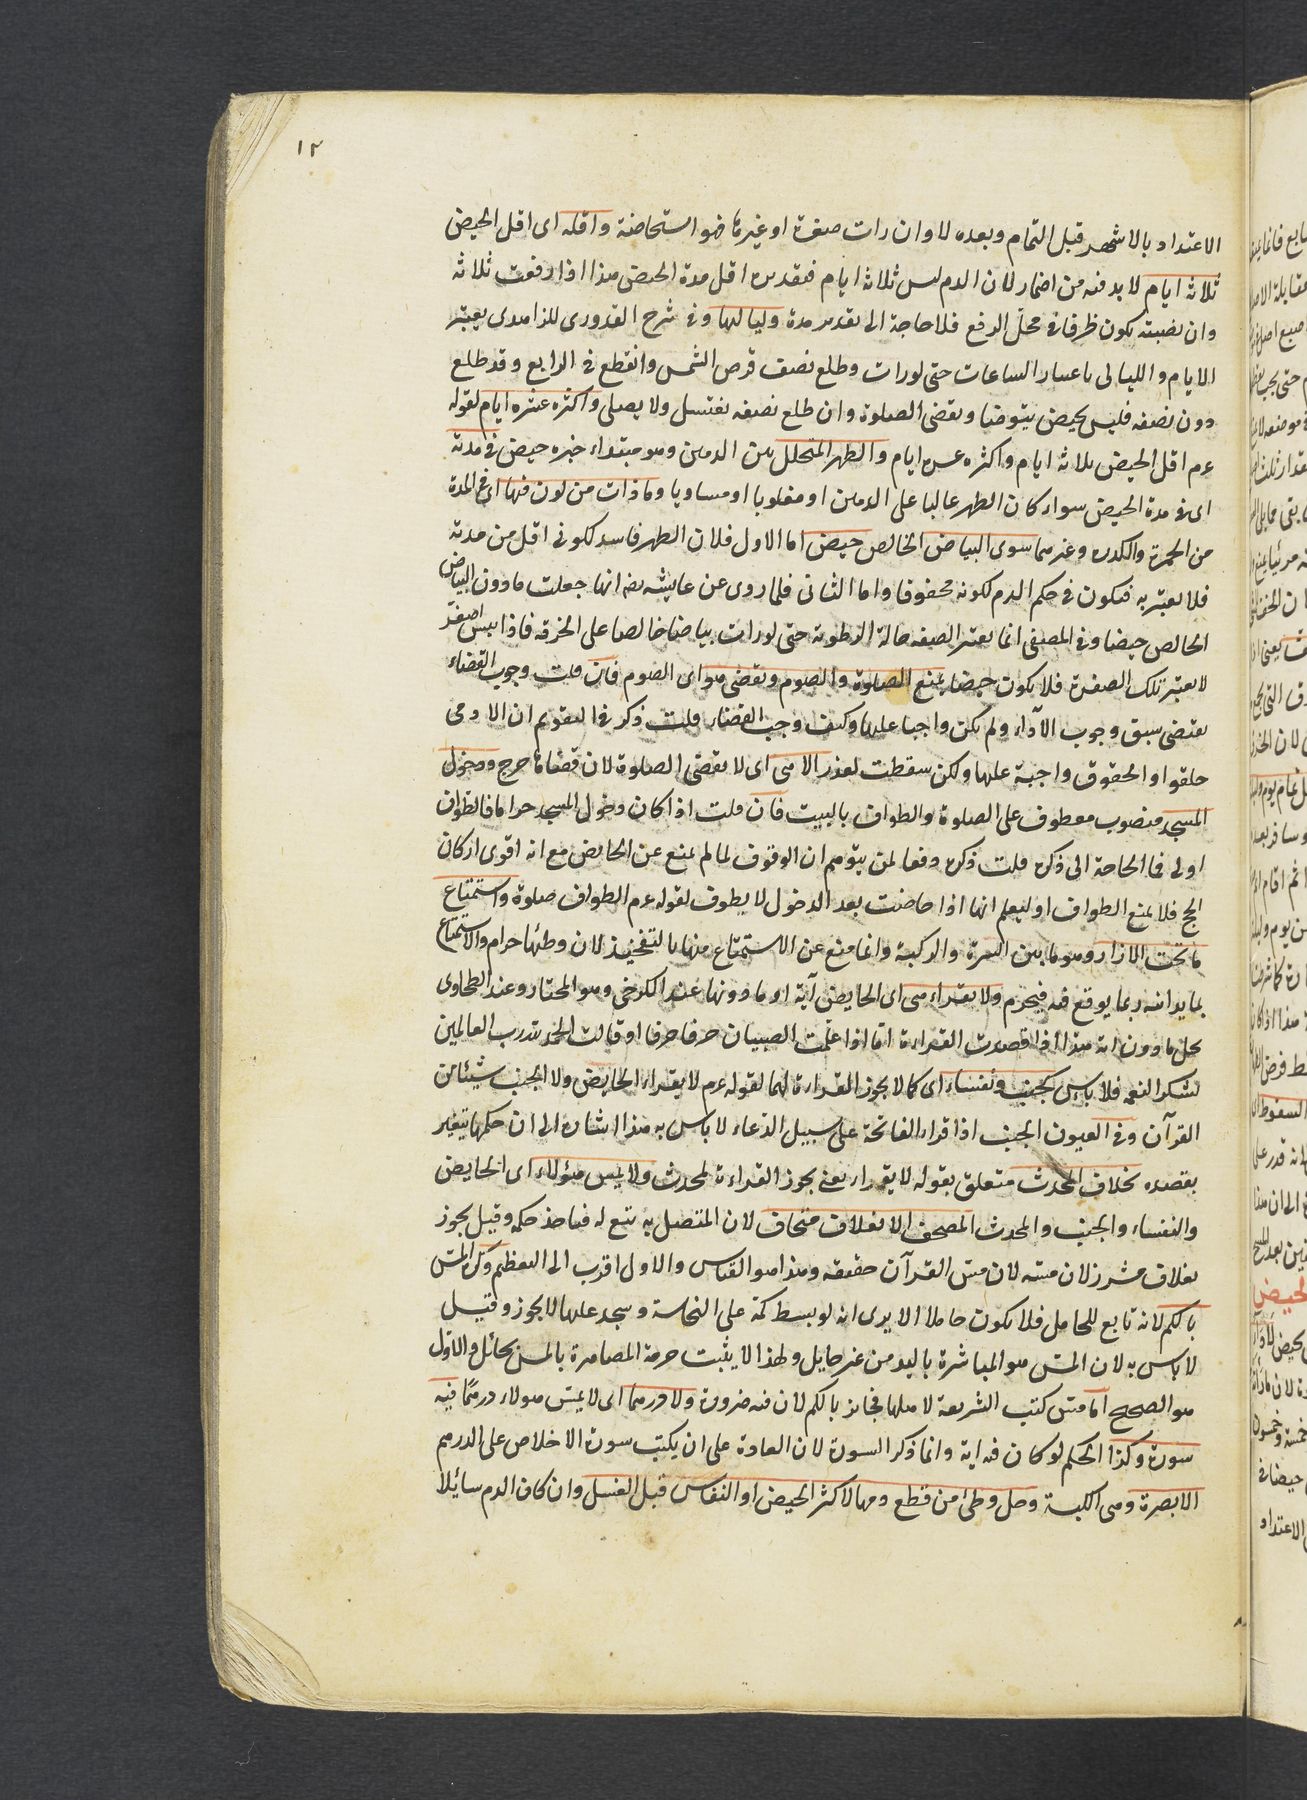 ١٢
الاعتداد بالاشهر قبل التمام وبعده لا وان رات صفرة او غيرها فهو استحاضة واقله اى اقل الحيض
ثلاثة ايام لا بد فيه من اضمار لان الدم ليس ثلاثة ايام فتقديره اقل مدة الحيض هذا اذا رفعت ثلاثة
وان نصبته يكون ظرفا فى محل الرفع فلا حاجة الى تقدير مدة ولياليها وفى شرح القدورى للزاهدى يعتبر
الايام والليالى باعتبار الساعات حتى لو رات وطلع نصف قرص الشمس وانقطع فى الرابع وقد طلع
دون نصفه فليس بحيض يتوضأ وتقضى الصلوة وان طلع نصفه تغتسل ولا يصلى واكثره عشرة ايام لقوله
عم اقل الحيض ثلاثة ايام واكثره عشرة ايام والطهر المتخلل بين الدمين وهو مبتداء خبره حيض فى مدته
اى فى مدة الحيض سواء كان الطهر غالبا على الدمين او مغلوبا او مساويا وما رات من لون فيها اى فى المدة
من الحمرة والكدرة وغيرهما سوى البياض الخالص حيض اما الاول فلان الطهر فاسد لكونه اقل من مدته
فلا يعتبر به فيكون فى حكم الدم لكونه محفوفا واما الثانى فلما روى عن عايشه رضه انها جعلت ما دون البياض
الخالص حيضا وفى المصفى انما يعتبر الصفة حالة الرطوبة حتى لو رات بياضا خالصا على الخرقه فاذا يبس اصفر
لا يعتبر تلك الصفرة فلا يكون حيضا يمنع الصلوة والصوم وتقضى هو اى الصوم فان قلت وجوب القضاء
يقتضى سبق وجوب الاداء ولم يكن واجبا عليها وكيف وجب القضاء قلت ذكر فى التقويم ان الادمى
خلقوا والحقوق واجبة عليها ولكن سقطت لعذر لا هى اى لا يقضى الصلوة لان قضاءها حرج ودخول
المسجد منصوب معطوف على الصلوة والطواف بالبيت فان قلت اذا كان دخول المسجد حراما فالطواف
اولى فما الحاجة الى ذكره قلت ذكره دفعا لمن يتوهم ان الوقوف لما لم يمنع عن الحايض مع انه اقوى اركان
الحج فلا يمنع الطواف او ليعلم انها اذا حاضت بعد الدخول لا يطوف لقوله عم الطواف صلوة واستمتاع
ما تحت الازار وهو ما بين السرة والركبة وانما منع عن الاستمتاع منها بالتفخيذ لان وطئها حرام والاستمتاع
بما يدانيه ربما يوقع فيه فيحرم ولا يقراء هى اى الحايض آية او ما دونها عند الكرخى وهو المختار وعند الطحاوى
يحل ما دون اية هذا اذا قصدت القراءة اما اذا علمت الصبيان حرفا حرفا او قالت الحمد لله رب العالمين
لشكر النعم فلا باس كجنب ونفساء اى كما لا يجوز القراءة لهما لقوله عم لا يقراء الحايض ولا الجنب شيئا من
القرآن وفى العيون الجنب اذا قراء الفاتحة على سبيل الدعاء لا باس به هذا اشارة الى ان حكمها يتغير
بقصده بخلاف المحدث متعلق بقوله لا يقراء يعنى يجوز القراءة لمحدث ولا يمس هؤلاء اى الحايض
والنفساء والجنب والمحدث المصحف الا بغلاف متجاف لان المتصل به تبع له فياخذ حكمه وقيل يجوز
بغلاف مشرز لان مسه لان مس القرآن حقيقه وهذا هو القياس والاول اقرب الى التعظيم وكره المس
بالكم لانه تابع للحامل فلا يكون حاملا الا يرى انه لو بسط كمه على النجاسة وسجد عليها لا يجوز وقيل
لا باس به لان المس هو المباشرة باليد من غير حايل ولهذا لا يثبت حرمة المصاهرة بالمس بحائل والاول
هو الصحيح اما مس كتب الشريعة لاهلها فجائز بالكم لان فيه ضرورة ولا درهما اى لا يمس هولاء درهما فيه
سورة وكذا الحكم لو كان فيه اية وانما ذكر السورة لان العادة على ان يكتب سورة الاخلاص على الدرهم
الا بصرة وهى الكيسة وحل وطئ من قطع دمها لاكثر الحيض او النفاس قبل الغسل وان كان الدم سايلا